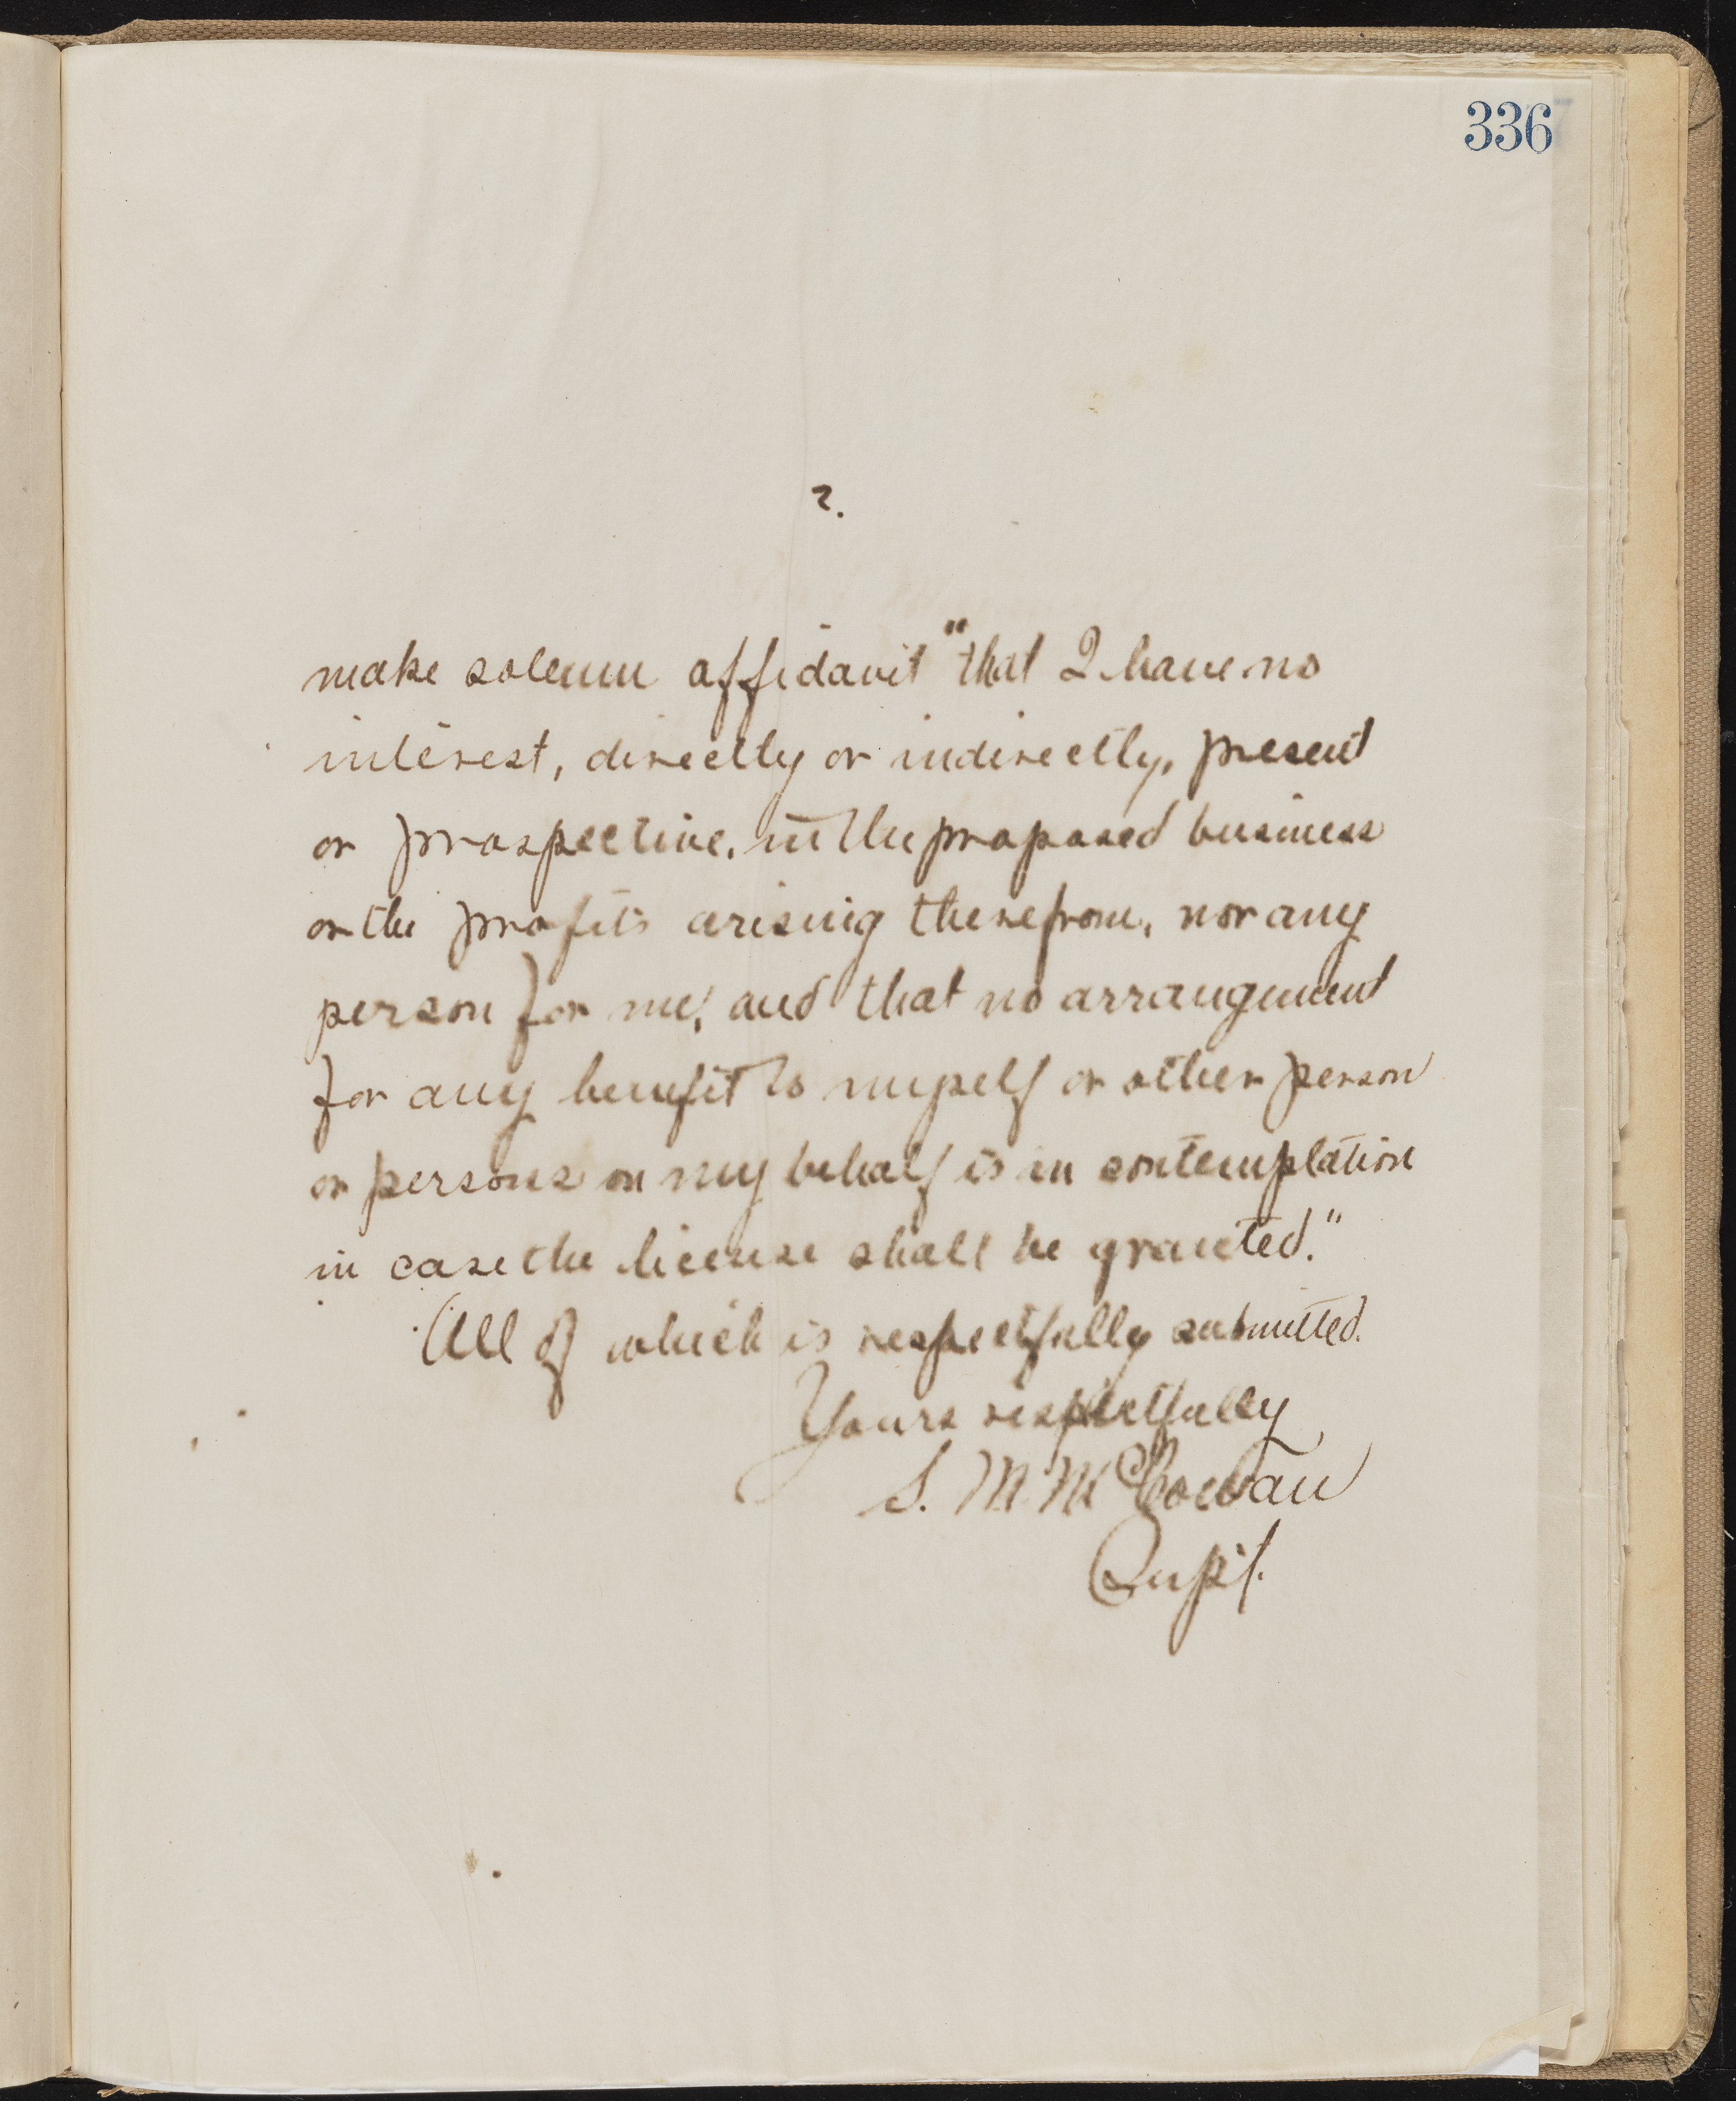 336
2.
make solemn affidavit "that I have no
interest, directly or indirectly, present
or prospective, in the proposed business
or the profits arising therefrom, nor any
person for me, and that no arrangement
for any benefit to myself or other person
or persons on my behalf is in contemplation
in case the license shall be granted."
All of which is respectfully submitted.
Yours respectfully
S. M. McCowan
Supt.